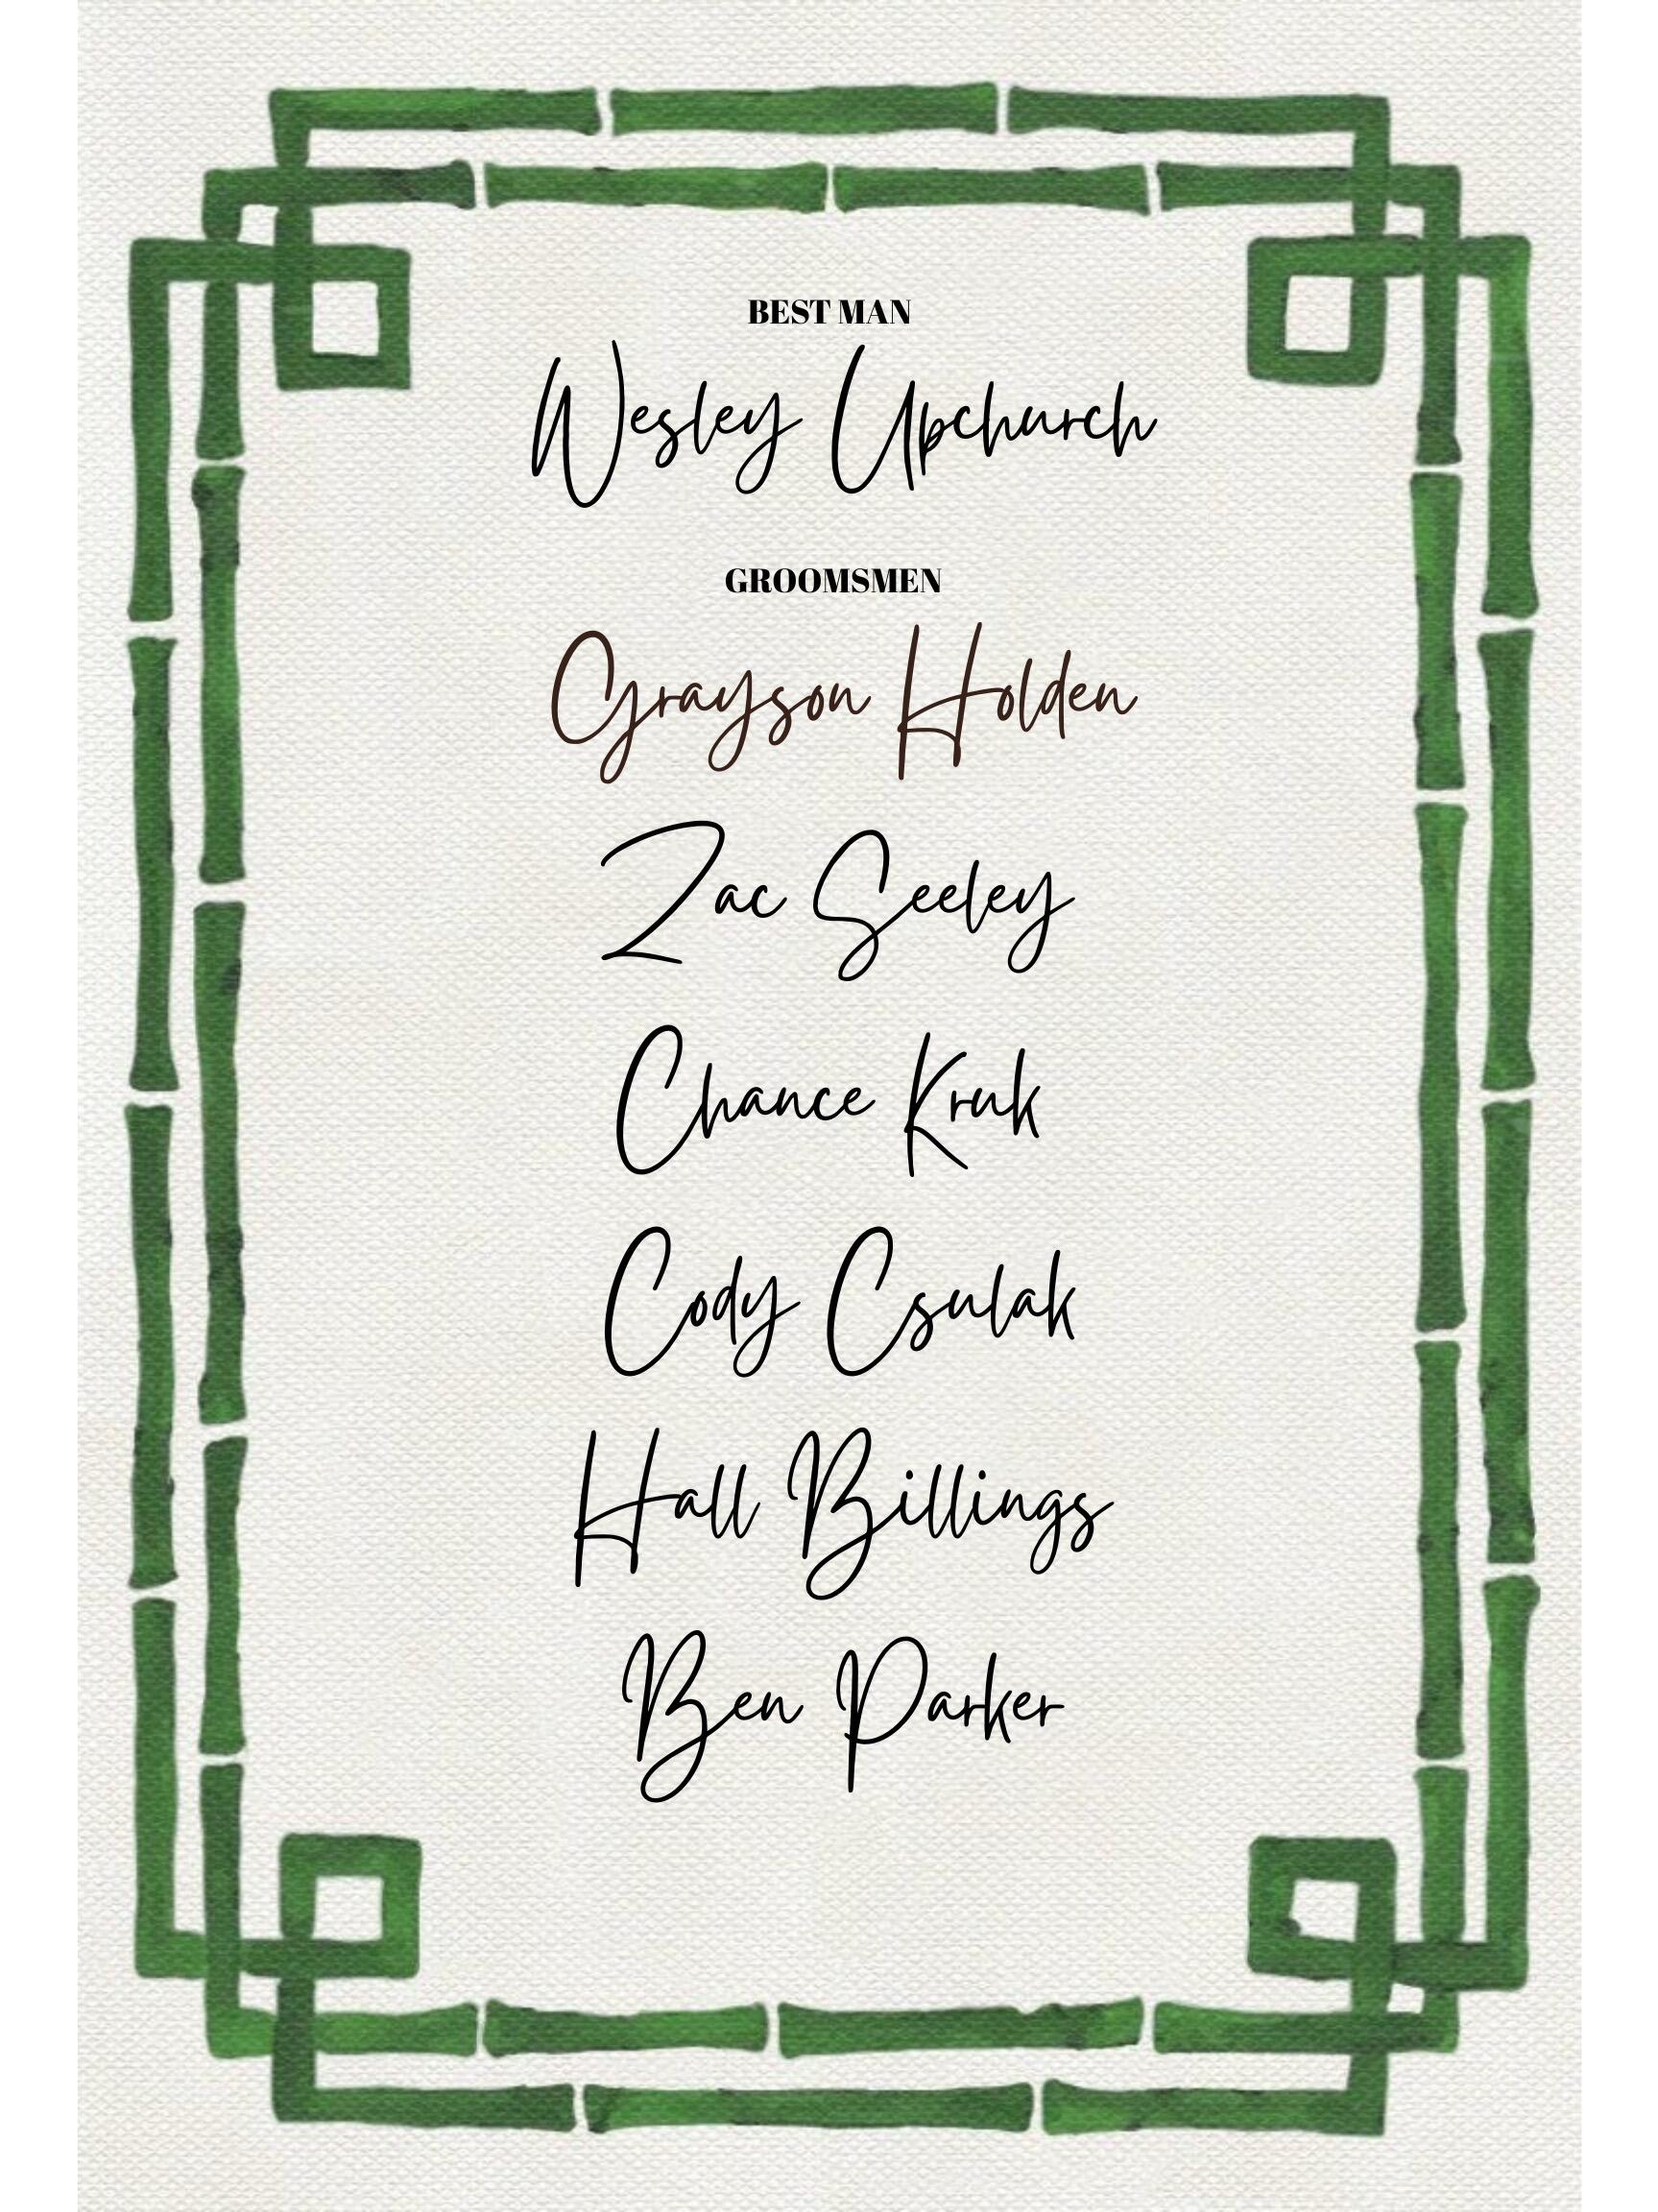 BEST MAN
Wesley Upchurch
GROOMSMEN
Grayson Holden
Zac Seeley
Chance Kruk
Cody Csulak
Hall Billings
Ben Parker